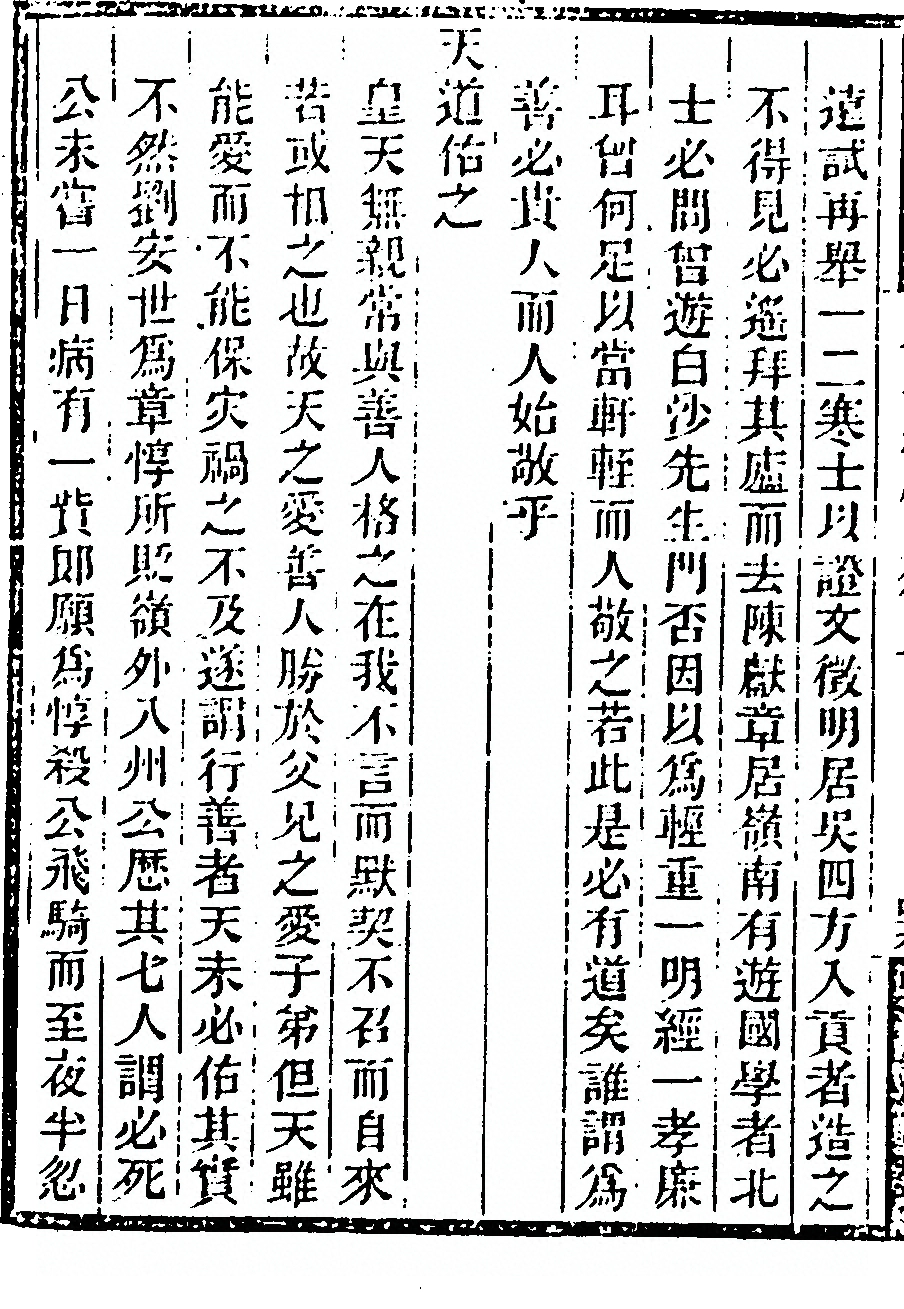 遠試再舉一二寒士以證文徵明居吳四方入貢者造之
不得見必遙拜其廬而去陳獻章居嶺南有遊國學者北
士必問曾遊白沙先生門否因以為輕重一明經一孝廉
耳曾何足以當軒輊而人敬之若此是必有道矣誰謂為
善必貴人而人始敬乎
天道佑之
皇天無親常與善人格之在我不言而默契不召而自來
若或相之也故天之愛善人勝於父兄之愛子弟但天雖
能愛而不能保灾禍之不及遂謂行善者天未必佑其實
不然劉安世為章惇所貶嶺外八州公歷其七人謂必死
公未嘗一日病有一貲郎願為惇殺公飛騎而至夜半忽